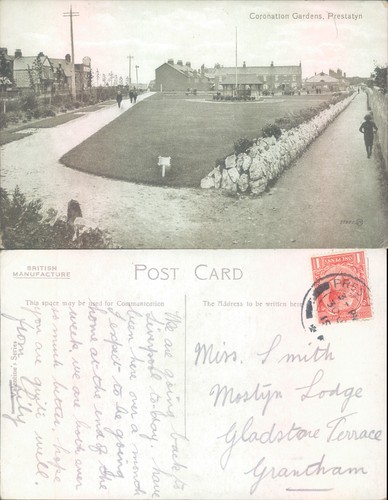 Coronation Gardens, Prestatyn
BRITISH
MANUFACTURE
POST CARD
This space may be used for Communication
The Address to be written here
We are going back to
Liverpool today, have
been here over a month
I expect to be going
home at the end of the
week, we are both ever
so much better, hope
you are quite well.
from Emily
Miss. Smith
Mostyn Lodge
Gladstone Terrace
Grantham